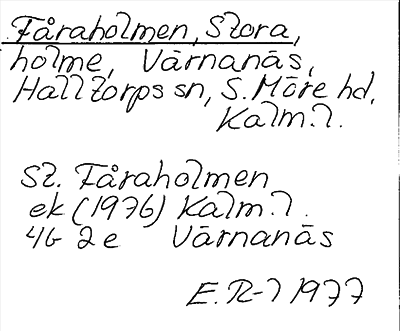 Fåraholmen, Stora,
holme, Värnanäs,
Halltorps sn, S. Möre hd.
Kalm. l.
St. Fåraholmen
ek (1976) Kalm. l.
4G 2e Värnanäs
E. R-l 1977